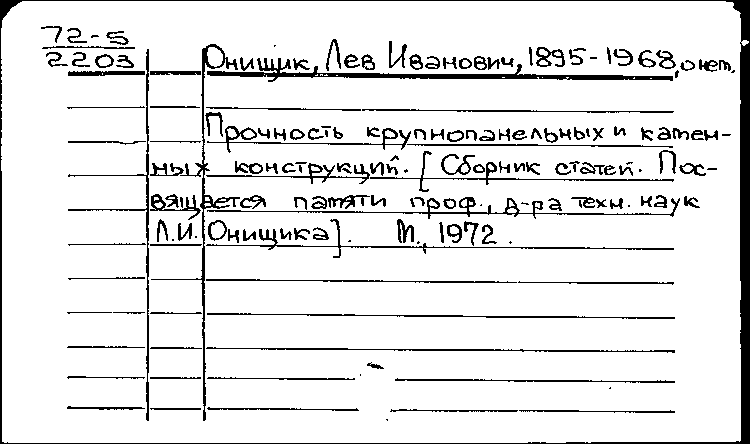 72-5
2203
Онищик, Лев Иванович, 1895-1968, о нем.
Прочность крупнопанельных и камен-
ных конструкций. [Сборник статей. Пос-
вящается памяти проф., д-ра техн. наук
Л.И. Онищика]. М., 1972.